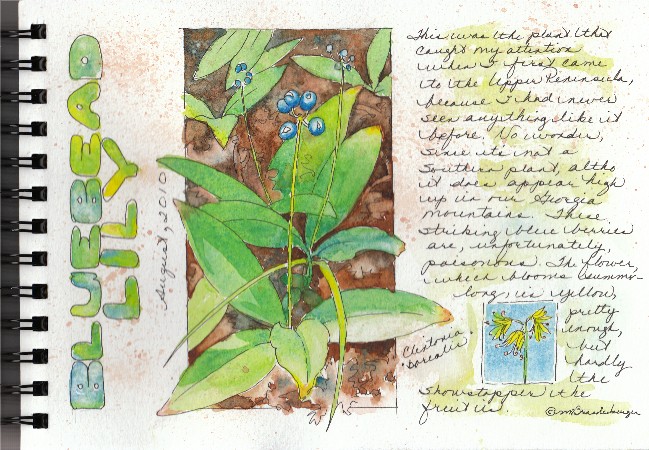 BLUEBEAD
LILY
August, 2010
This was the plant that
caught my attention
when I first came
to the Upper Peninsula,
because I had never
seen anything like it
before. No wonder,
since its not a
Southern plant, altho
it does appear high
up in our Georgia
mountains. These
striking blue berries
are, unfortunately,
poisonous. The flower,
which blooms summer-
long, is yellow,
pretty
enough,
but
hardly
the
showstopper the
fruit is.
Clintonia
borealis